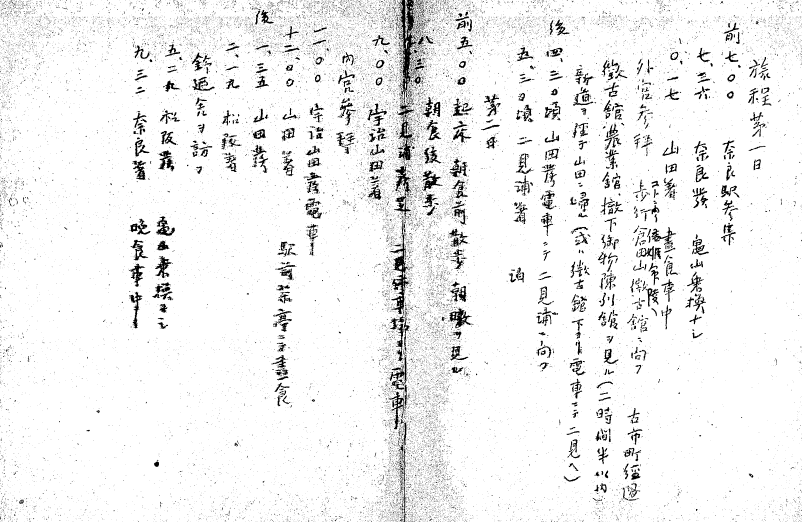 旅程第一日
前七、〇〇 奈良駅参集
七、三六 奈良発 亀山乗換ナシ
〇、一七 山田着 昼食車中
外宮参拝 歩行倉田山徴古館ニ向フ 古市町経過
徴古館、農業館、撤下御物陳列館ヲ見ル(二時間半以内)
新道ヲ経テ山田ニ帰ル(或ハ徴古館下ヨリ電車ニテ二見ヘ)
後四、三〇頃、山田発電車ニテ二見浦ニ向フ
五、三〇頃 二見浦着 泊
第二日
前五、〇〇 起床 朝食前散歩 朝暾ヲ見ル
八、三〇 朝食後散歩
二見浦発 電車
九、〇〇 宇治山田着
内宮参拝
一一、〇〇 宇治山田発電車
十二、〇〇 山田着 駅前茶亭ニテ昼食
後一、三五 山田発
二、一九 松阪着
鈴廼舎ヲ訪フ
五、二九 松阪発 亀山乗換ナシ
九、三二 奈良着 晩食車中